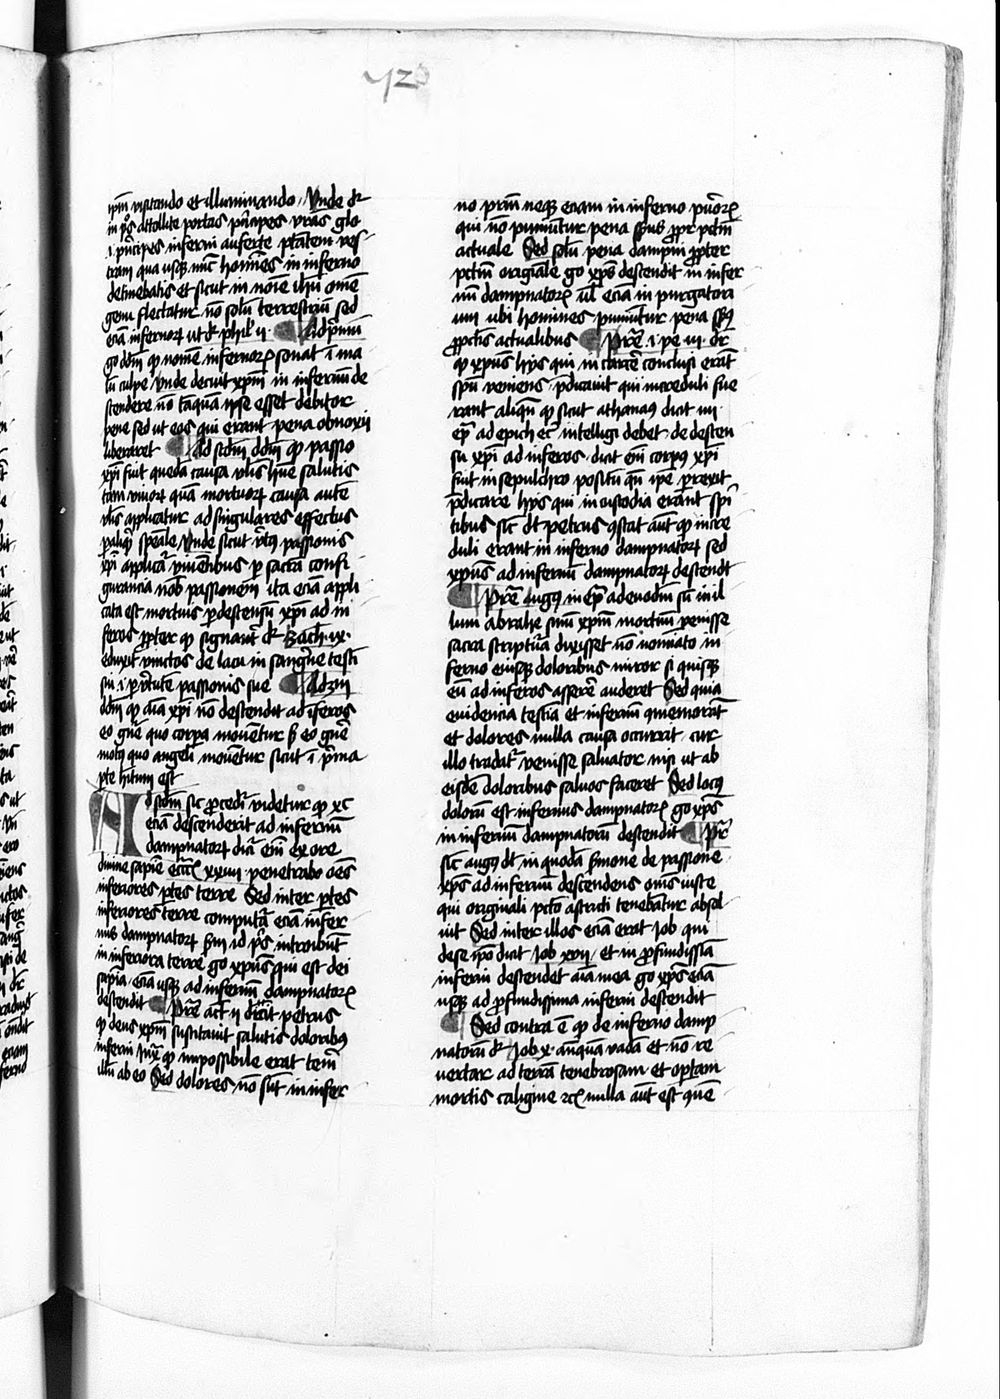 42
ip̄m visitando et illuminando / Vnde dr̄
in ps̄ Attollite portas pͥncipes vr̄as glo
.i. pͥncipes inferni auferte ptātem ves
tram qua usqꝫ nūc homīes in inferno
detinebatis et sicut in noīe ih̄u om̄e
genu flectatur nō solū terrestriū sed
eciā infernorꝝ ut dr̄ phil' ii · Ad pͥmū
g̊ dd̄m ꝙ nomē infernorꝝ sonat ī ma
lū culpe / Vnde decuit xp̄m in infernū de
scendere nō tāquā ipse esset debitor
pene sed ut eos qui erant pena obnoxii
liberaret Ad scd̄m dd̄m ꝙ passio
xp̄i fuit quedā causa vl̄is hūe salutis
tam viuorꝝ quā mortuorꝝ causa autē
vl̄is applicatur ad singulares effectus
ꝑ aliqͥd spēale Vnde sicut vͥtus passionis
xp̄i applicat̄ viuentibus ꝑ sacr̄a confi
gurancia nob̄ passionem ita eciā appli
cata est mortuis ꝑ descensū xp̄i ad in
feros ꝓpter qḋ signant̄ dr̄ Zach̄ ix ·
eduxit vinctos de lacu in sangͥne testi
sui .i. ꝑ vͥtutē passionis sue Ad 3m
dd̄m ꝙ aīa xp̄i nō descendit ad īferos
eo gn̄e quo corpa mouentur s̄ eo gn̄e
motꝯ quo angeli mouentur sicut ī pͥma
ꝑte hītum est
Ad scd̄m sic ꝓcedit̄ videtur ꝙ xc̄
eciā descenderit ad infernū
dampnatorꝝ dicit̄ em̄ ex ore
diuine sapiē eccͥi xxiiii · penetrabo oēs
inferiores ꝑtes terre Sed inter ꝑtes
inferiores terre computat̄ eciā infer
nus dampnatorꝝ s̄m id ps̄ · introibūt
in inferiora terre g̊ xpūs qui est dei
sapīa · eciā usqꝫ ad infernū dampnatorꝝ
descendit Pret̄ act̄ ii dicit petrus
ꝙ deus xp̄m suscitauit solutis doloribꝯ
inferni iux̄ qḋ impossibile erat teneri
illū ab eo Sed dolores nō sūt in infer
no pr̄m neqꝫ eciam in inferno puͦorꝝ
qui nō puniūtur pena sensus ꝓpt̄ pctm̄
actuale Sed solū pena dampni ꝓpter
pctm̄ originale g̊ xp̄s descendit in infer
nū dampnatorꝝ ul̄ eciā in purgatori
um ubi homines puniūtur pena sensꝯ
ꝓ pctīs actualibus Pret̄ i · pe iii dr̄
ꝙ xpūs hijs qui in carcere conclusi erāt
spū veniens · p̄dicauit qui increduli fue
rant aliqn̄ ꝙ sicut athanasꝯ dicit in
epl̄a ad epich ec̄ intelligi debet · de descen
su xp̄i ad inferos · dicit em̄ corpꝯ xp̄i
fuit in sepulchro positū qn̄ ip̄e ꝑrexit
p̄dicare hijs qui in custodia erant spī
tibus sic dt̄ petrus 9stat aūt ꝙ incre
duli erant in inferno dampnatorꝝ sed
xpūs ad infernū dampnatorꝝ descendit
Pret̄ Augꝯ in epl̄a ad euodiū si in il
lum abrahe sinū xpūm mortuū venisse
sacra scriptura dixisset nō nomīato in
ferno eiusqꝫ doloribus miror si quisqꝫ
eū ad inferos assere̅ auderet Sed quia
euidencia testīa et infernū 9memorāt
et dolores nulla causa occurrit cur
illo tradat̄ venisse saluator nisi ut ab
eisdē doloribus saluos faceret Sed locꝯ
dolorū est infernus dampnatorꝝ g̊ xp̄s
in infernū dampnatorū descendit Pret̄
sic augꝯ dt̄ in quodā s̄mone de passione ·
xp̄s ad infernū descendens om̄s iuste
qui originali pctō astricti tenebātur absol
uit Sed inter illos eciā erat Iob qui
de se ip̄o dicit Iob xvij / et in ꝓfundissīa
inferni descendet aīa mea g̊ xp̄s eciā
usqꝫ ad ꝓfundissima inferni descendit
Sed contra ē ꝙ de inferno damp
natorū dr̄ Iob x · anteqͣ vadā et nō re
uertar ad terrā tenebrosam et opertam
mortis caligine ⁊c̄ nulla aūt est quē